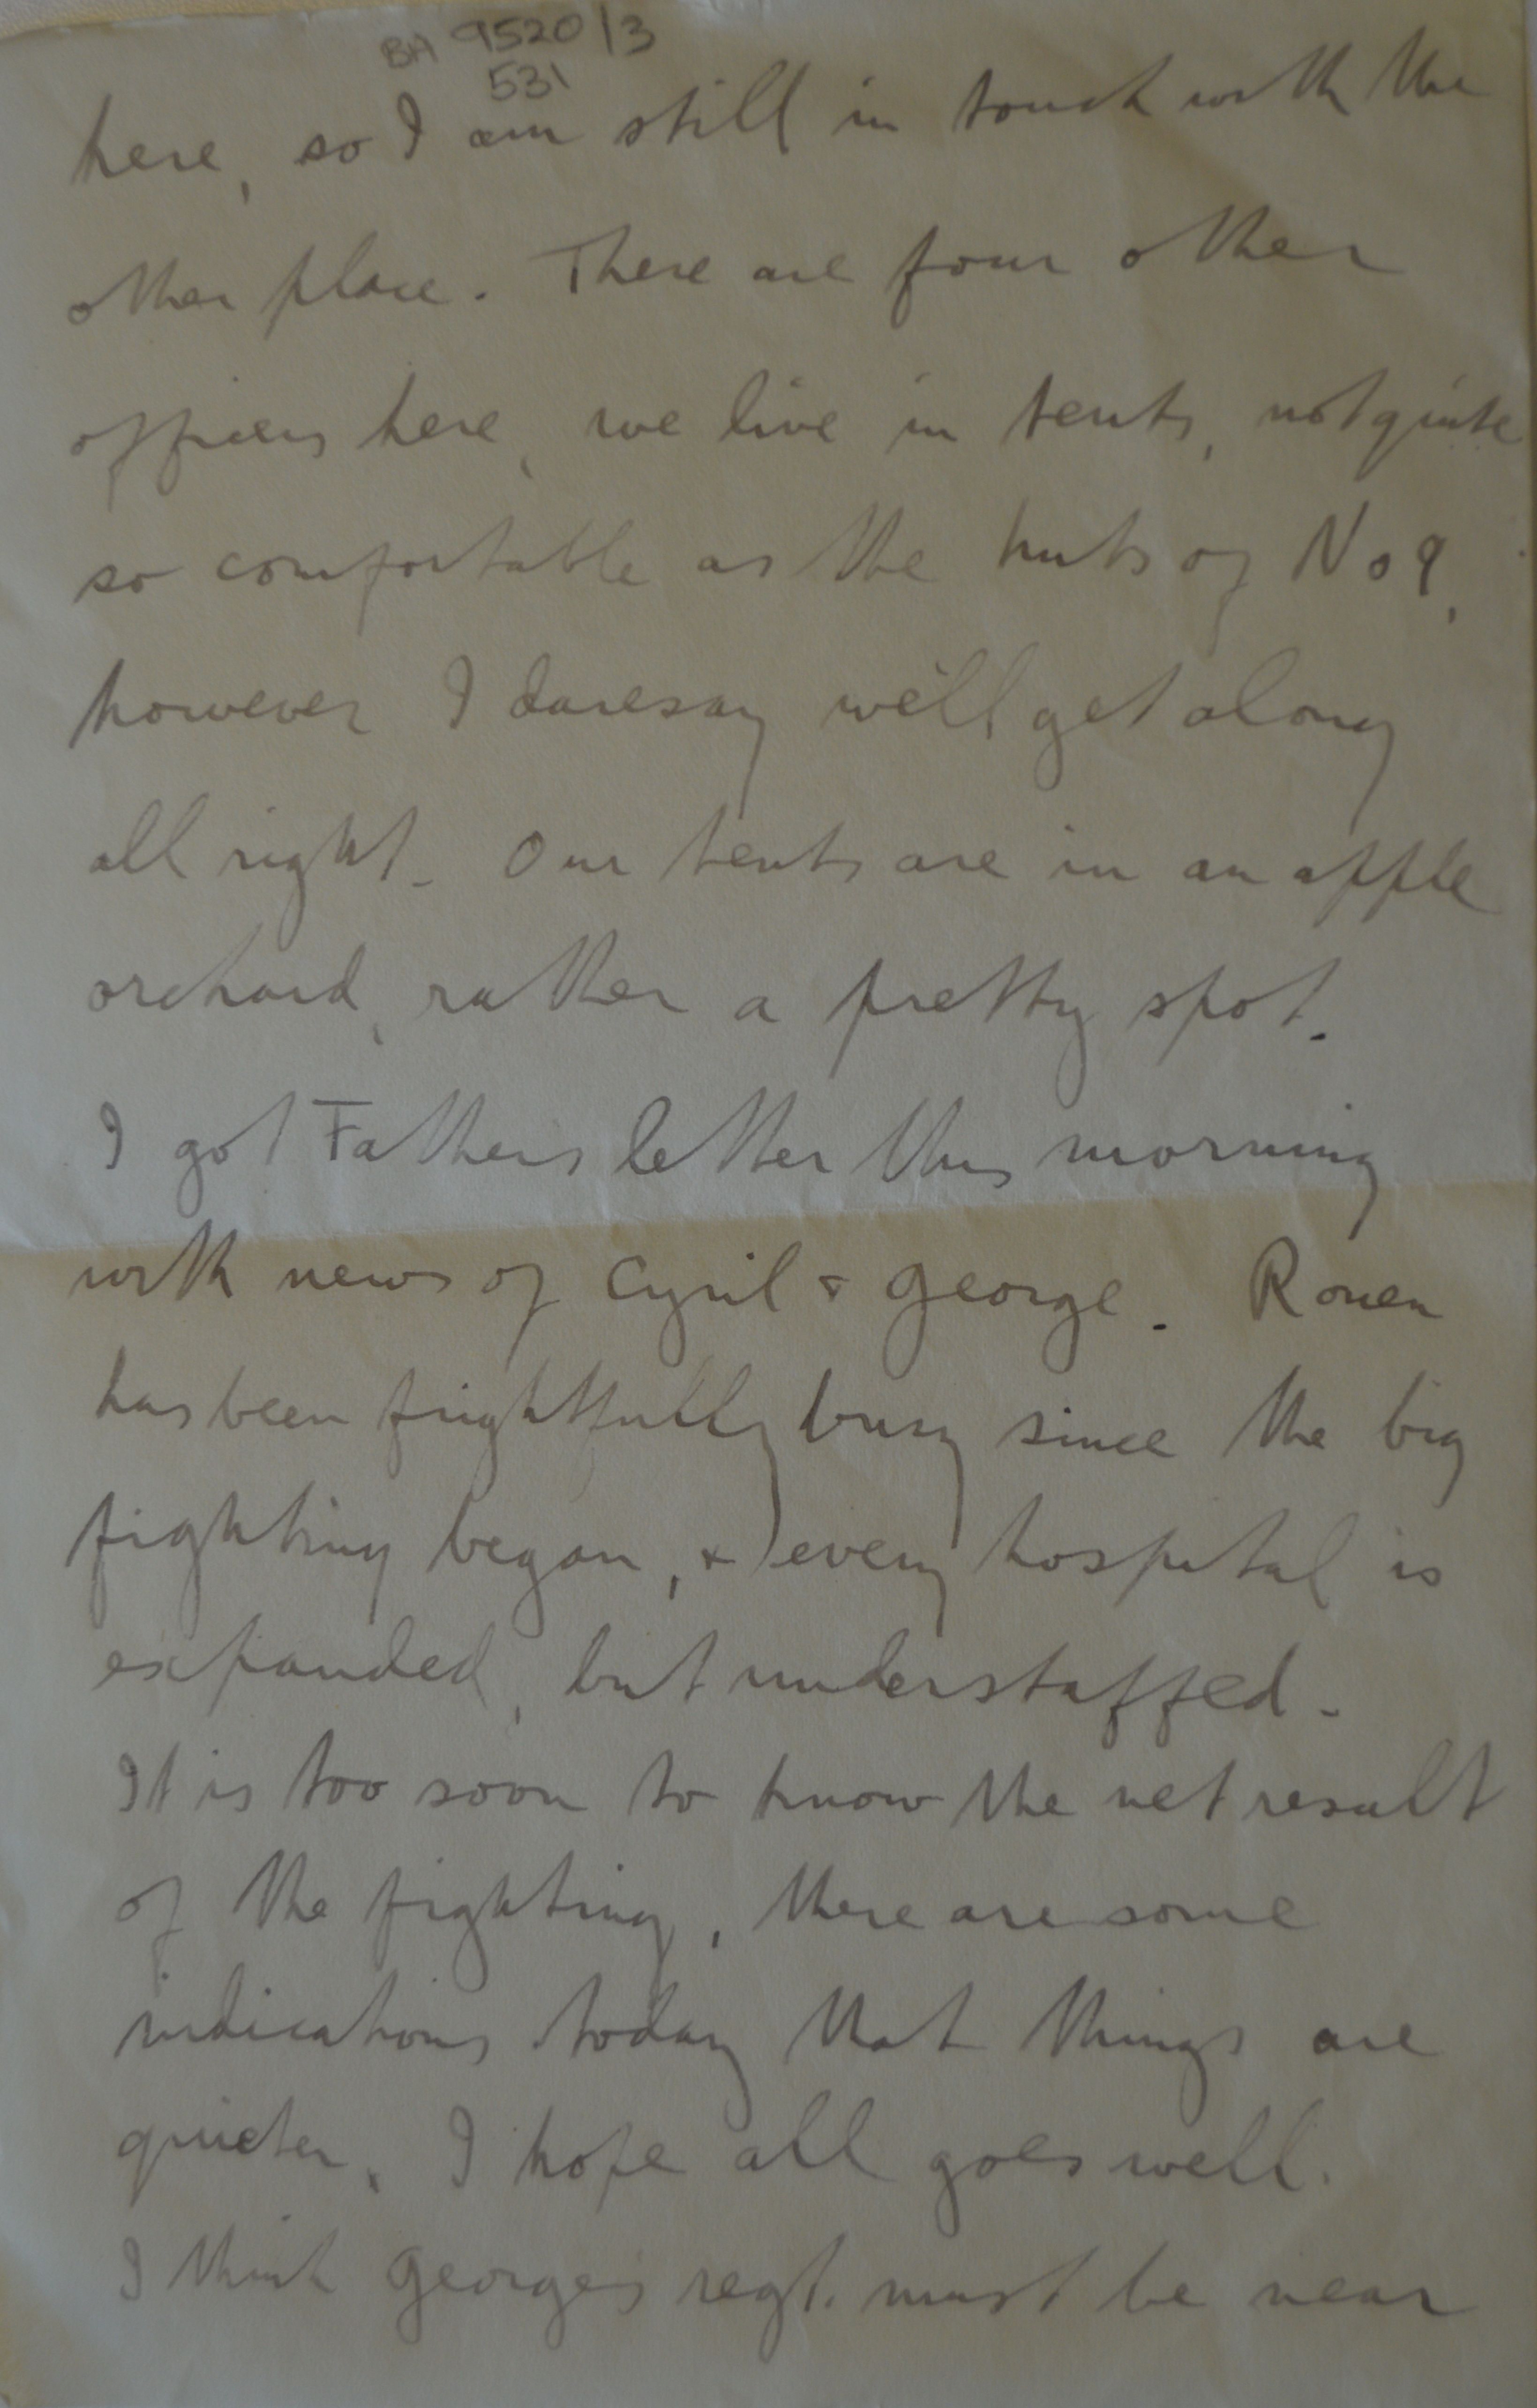 BA 9520/3
531
here, so I am still in touch with the
other place. There are four other
officers here, we live in tents, not quite
so comfortable as the huts of No 9,
however I daresay we'll get along
all right. Our tents are in an apple
orchard, rather a pretty spot.
I got Fathers letter this morning
with news of Cyril & George. Rouen
has been frightfully busy since the big
fighting began, & every hospital is
expanded, but understaffed.
It is too soon to know the net result
of the fighting, there are some
indications today that things are
quieter, I hope all goes well.
I think Georges regt. must be near